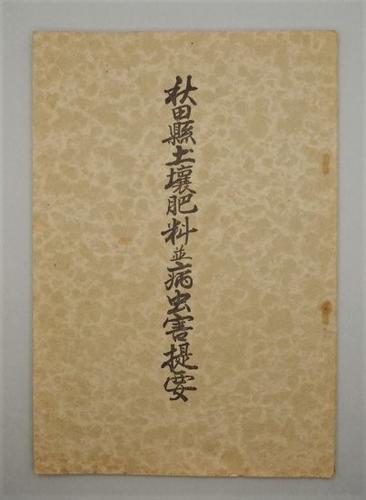 秋田縣土壤肥料並病虫害提要